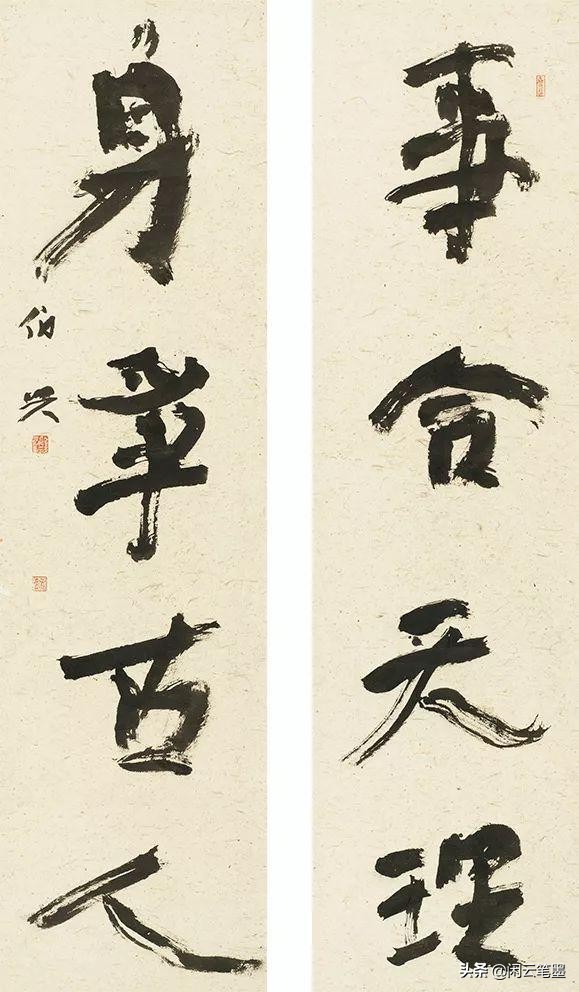 事合天理
身古人
伯兴
头条 @闲云笔墨